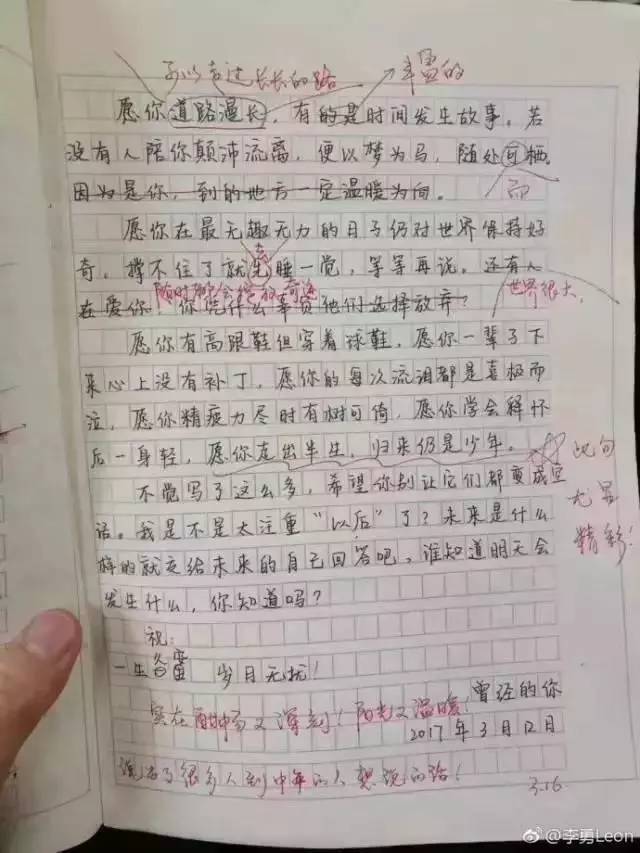 可以走过长长的路 丰富的
愿你道路漫长,有的是时间发生故事。若
没有人陪你颠沛流离,便以梦为马,随处可栖。
因为是你,到的地方一定温暖为向。
而
愿你在最无趣无力的日子仍对世界保持好
奇。撑不住了就先睡一觉,等等再说。还有人
随时都会绽放奇迹 世界很大,
在爱你,你凭什么辜负他们选择放弃?
愿你有高跟鞋但穿着球鞋,愿你一辈子下
来心上没有补丁,愿你的每次流泪都是喜极而
泣,愿你精疲力尽时有树可倚,愿你学会释怀
后一身轻,愿你走出半生,归来仍是少年。 此句
不觉写了这么多,希望你别让它们都变成空 尤其
话。我是不是太注重“以后”了?未来是什么 精彩!
样的就交给未来的自己回答吧,谁知道明天会
发生什么,你知道吗?
祝:
一生备蜜 岁月无扰!
曾经的你
实在酣畅又深刻!阳光又温暖!
2017年3月12日
说出了很多人到中年的人想说的话!
3.16
@李勇Leon